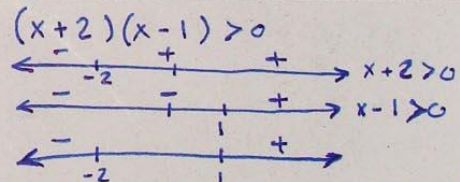 (x+2)(x-1)>0
- + +
-2
x+2>0
- - +
1
x-1>0
- +
-2 1